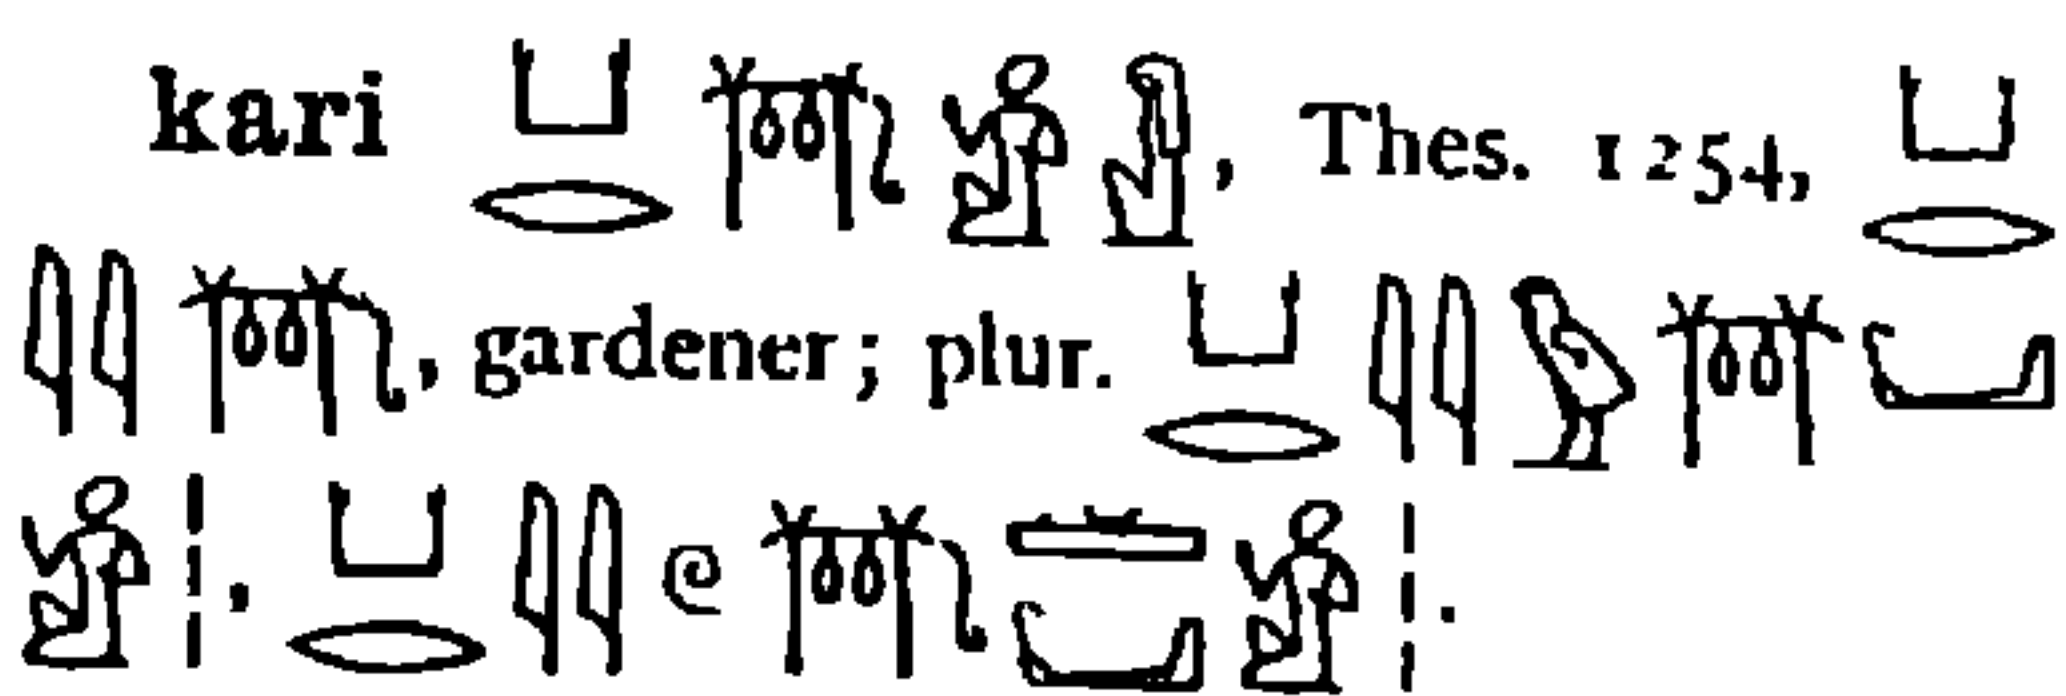 kari 𓂓𓂋𓇭𓀀𓁐, Thes. 1254, 𓂓𓂋
𓇋𓇋𓇭, gardener; plur. 𓂓𓂋𓇋𓇋𓅱𓇭
𓀀𓏪, 𓂓𓂋𓇋𓇋𓏲𓇭𓀀𓏪.